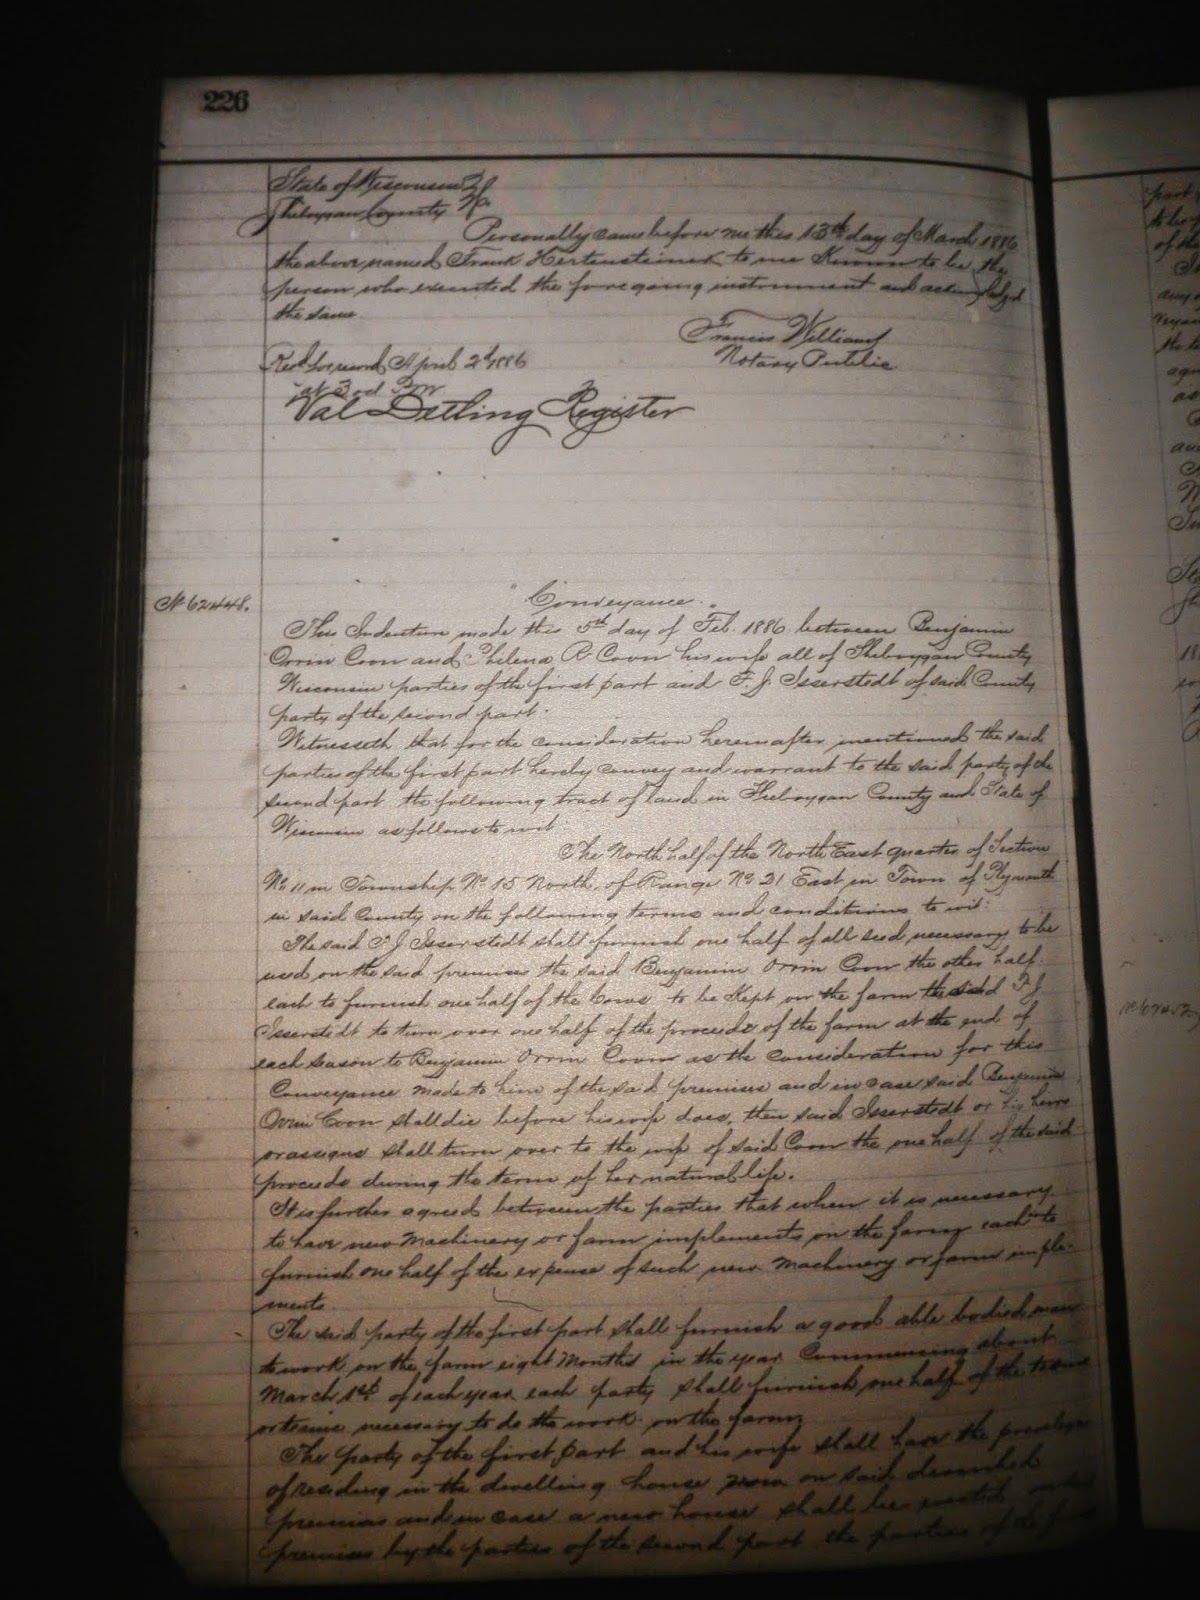 226
State of Wisconsin } ss.
Sheboygan County
Personally came before me this 13th day of March 1886
the above named Frank Hertensteiner to me Known to be the
person who executed the foregoing instrument and acknowledged
the same
Francis Williams
Notary Public
Recd for record April 2d 1886
at 3 od PM
Val Detling Register
No 62448.
Conveyance.
This Indenture made this 5th day of Feb. 1886 between Benjamin
Orrin Coon and Philena R Coon his wife all of Sheboygan County
Wisconsin parties of the first part and F. J. Isserstedt of said County
party of the second part.
Witnesseth that for the consideration hereinafter mentioned the said
parties of the first part hereby convey and warrant to the said party of the
second part the following tract of land in Sheboygan County and State of
Wisconsin as follows to wit
The North half of the North East quarter of Section
No 11 in Township No 15 North, of Range No 21 East in Town of Plymouth
in said County on the following terms and conditions to wit:
The said F J Isserstedt shall furnish one half of all seed necessary to be
used on the said premises the said Benjamin Orrin Coon the other half.
each to furnish one half of the Cows to be Kept on the farm the said F J
Isserstedt to turn over one half of the proceeds of the farm at the end of
each season to Benjamin Orrin Coon as the consideration for this
Conveyance made to him of the said premises and in case said Benjamin
Orrin Coon shall die before his wife does, then said Isserstedt or his heirs
or assigns shall turn over to the wife of said Coon the one half of the said
proceeds during the term of her natural life.
It is further agreed between the parties that when it is necessary
to have new machinery or farm implements on the farm each to
furnish one half of the expense of such new machinery or farm imple-
ments.
The said party of the first part shall furnish a good able bodied man
to work on the farm eight Months in the year Commencing about
March 1st of each year each party shall furnish one half of the teams
or teams necessary to do the work on the farm
The party of the first part and his wife shall have the privilege
of residing in the dwelling house now on said described
premises and in case a new house shall be erected
premises by the parties of the second part the parties of the